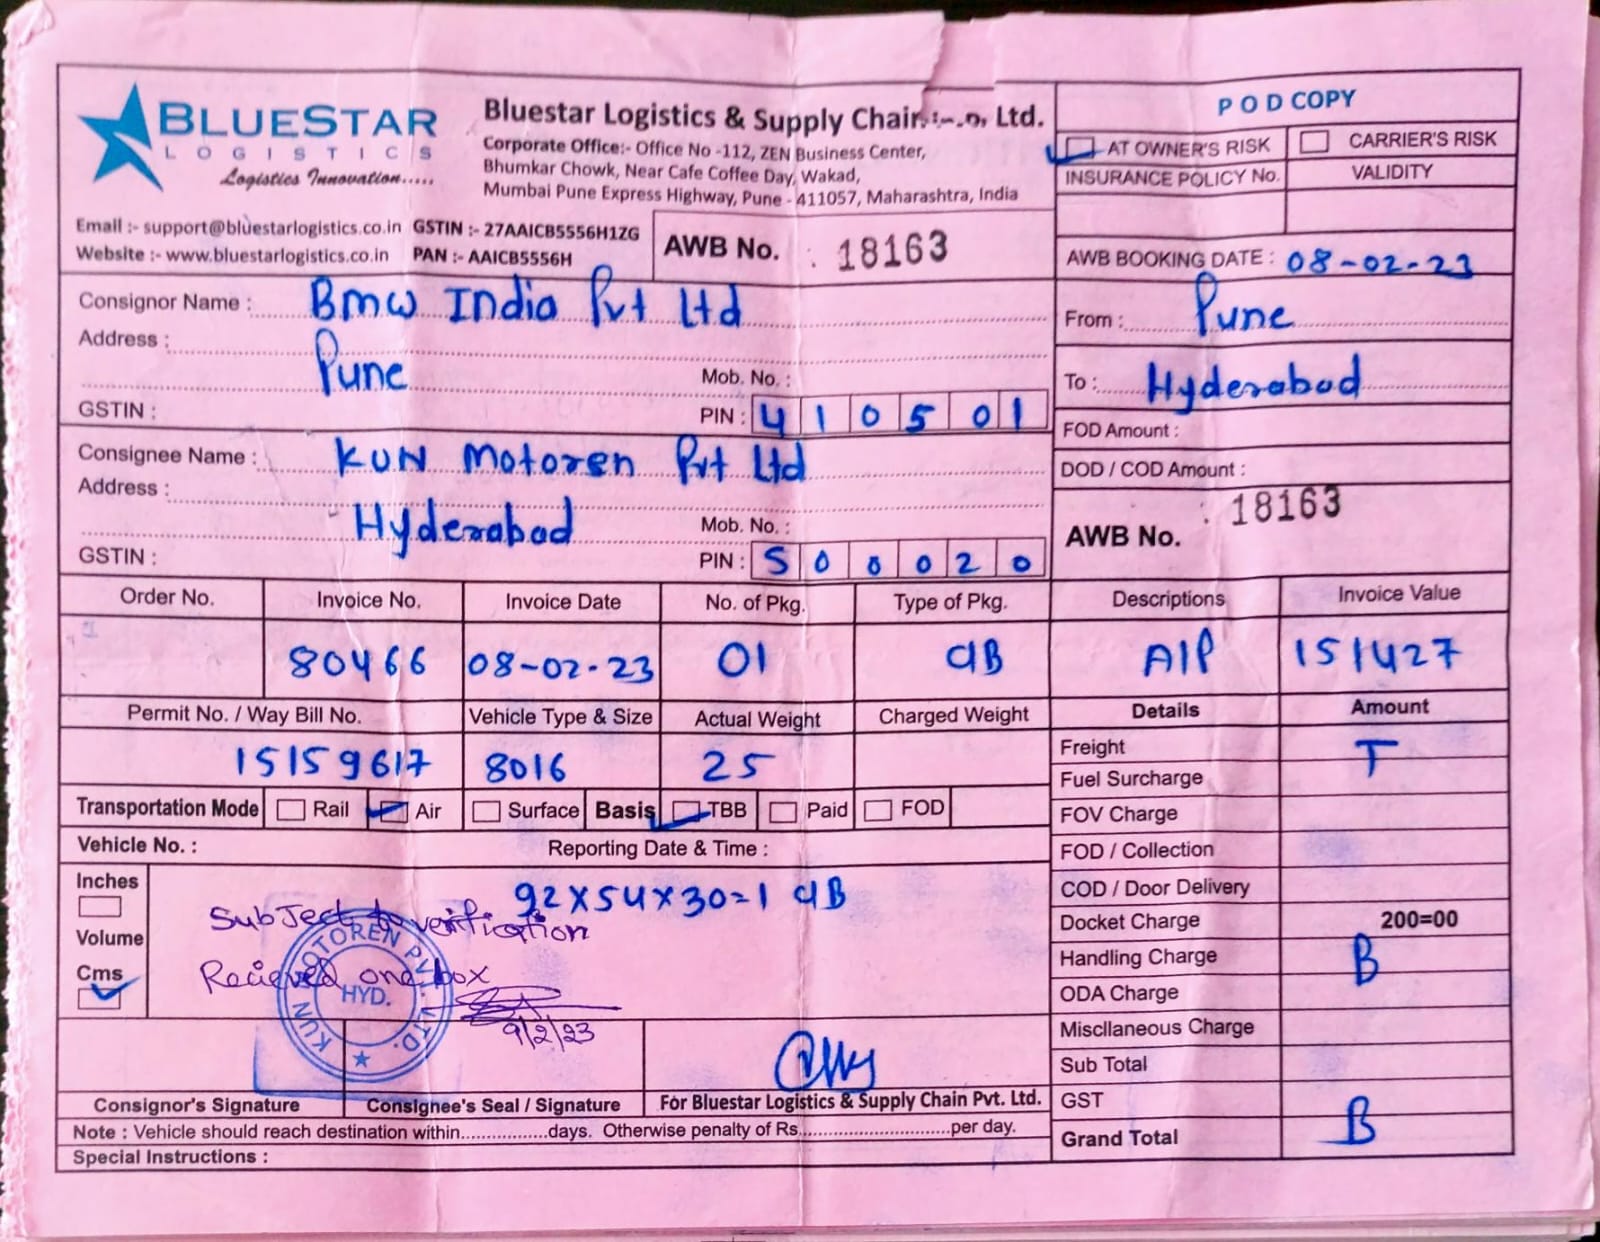 BLUESTAR
LOGISTICS
Logistics Innovation.....
Bluestar Logistics & Supply Chain Ltd.
Corporate Office:- Office No -112, ZEN Business Center,
Bhumkar Chowk, Near Cafe Coffee Day, Wakad,
Mumbai Pune Express Highway, Pune - 411057, Maharashtra, India
Email :- support@bluestarlogistics.co.in GSTIN :- 27AAICB5556H1ZG
Website :- www.bluestarlogistics.co.in PAN :- AAICB5556H
AWB No. 18163
POD COPY
AT OWNER'S RISK CARRIER'S RISK
INSURANCE POLICY No. VALIDITY
AWB BOOKING DATE : 08-02-23
Consignor Name : Bmw India Pvt Ltd
Address :
Pune Mob. No. :
GSTIN : PIN : 410501
From : Pune
To : Hyderabad
FOD Amount :
DOD / COD Amount :
Consignee Name : KUN Motoren Pvt Ltd
Address :
Hyderabad Mob. No. :
GSTIN : PIN : 500020
AWB No. 18163
Order No. Invoice No. Invoice Date No. of Pkg. Type of Pkg. Descriptions Invoice Value
80466 08-02-23 01 CB A/P 151427
Permit No. / Way Bill No. Vehicle Type & Size Actual Weight Charged Weight
15159617 8016 25
Transportation Mode Rail Air Surface Basis TBB Paid FOD
Vehicle No. : Reporting Date & Time :
Inches
Volume
Cms
92x54x30=1 CB
Subject to verification
Recieved one box
9/2/23
KUN MOTOREN PVT. LTD.
HYD.
Consignor's Signature Consignee's Seal / Signature For Bluestar Logistics & Supply Chain Pvt. Ltd.
Note : Vehicle should reach destination within.................days. Otherwise penalty of Rs..............................per day.
Special Instructions :
Details Amount
Freight T
Fuel Surcharge
FOV Charge
FOD / Collection
COD / Door Delivery
Docket Charge 200=00
Handling Charge B
ODA Charge
Miscllaneous Charge
Sub Total
GST
Grand Total B